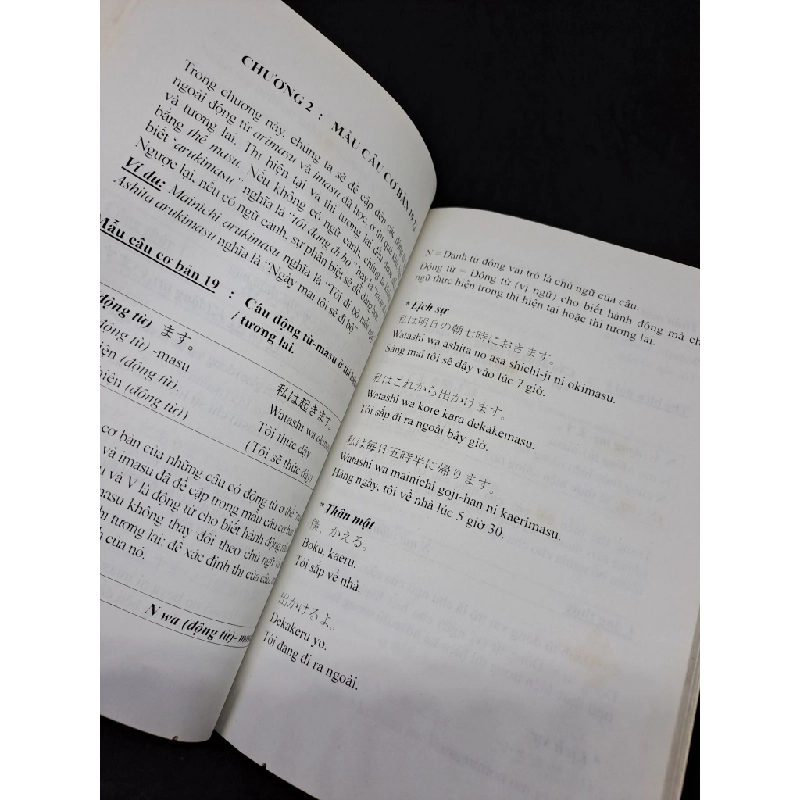 CHƯƠNG 2 : MẪU CÂU CƠ BẢN
Trong chương này, chúng ta sẽ đề cập đến các động
ngoài động từ arimasu và imasu đã học, ở
và tương lai. Thì hiện tại và thì tương lai đều
bằng thể masu. Nếu không có ngữ cảnh,
biết "arukimasu" nghĩa là "Tôi đang đi bộ" hay
Ngược lại, nếu có ngữ cảnh, sự phân biệt sẽ dễ dàng
Ví dụ: Mainichi arukimasu nghĩa là "Tôi đi bộ mỗi
Ashita arukimasu nghĩa là "Ngày mai tôi sẽ đi bộ".
Mẫu câu cơ bản 19 : Câu động từ-masu ở
/ tương lai.
(động từ) ます。 私は起きます。
(động từ) -masu Watashi wa
(động từ). Tôi thức dậy
(động từ)) (Tôi sẽ thức dậy)
cơ bản của những câu có động từ ở thể
và imasu đã đề cập trong mẫu câu cơ bản
u và V là động từ cho biết hành động
masu không thay đổi theo chủ ngữ
thì tương lai: để xác định thì của câu
của nó.
N wa (động từ)-
N = Danh từ đóng vai trò là chủ ngữ của câu.
Động từ = Động từ (vị ngữ) cho biết hành động mà ch
ngữ thực hiện trong thì hiện tại hoặc thì tương lai.
* Lịch sự
私は明日の朝七時におきます。
Watashi wa ashita no asa shichi-ji ni okimasu.
Sáng mai tôi sẽ dậy vào lúc 7 giờ.
私はこれから出かけます。
Watashi wa kore kara dekakemasu.
Tôi sắp đi ra ngoài bây giờ.
私は毎日五時半に帰ります。
Watashi wa mainichi goji-han ni kaerimasu.
Hàng ngày, tôi về nhà lúc 5 giờ 30.
* Thân mật
僕、かえる。
Boku, kaeru.
Tôi sắp về nhà.
出かけるよ。
Dekakeru yo.
Tôi đang đi ra ngoài.